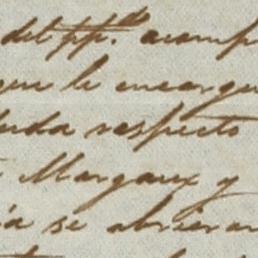 del pp.do acomp
que le encargu
duda respecto
Margaux y
ia se abrieran